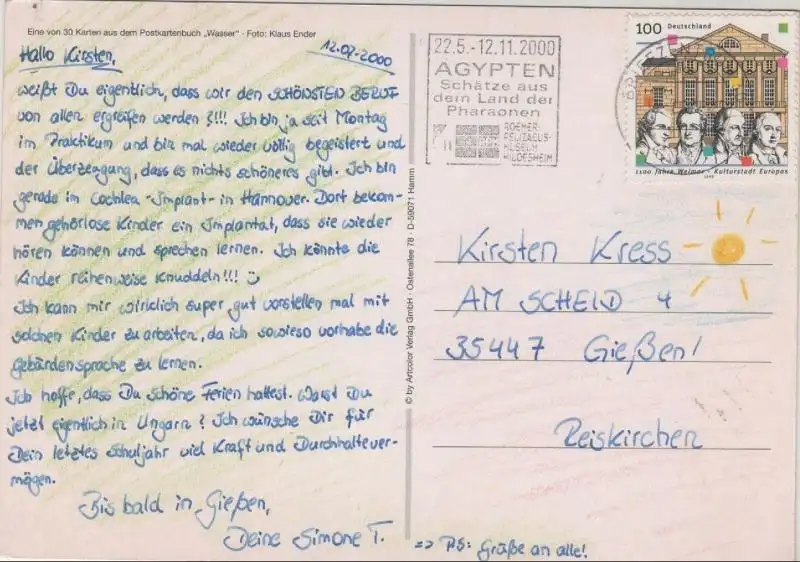 Eine von 30 Karten aus dem Postkartenbuch „Wasser“ · Foto: Klaus Ender
12.07.2000
Hallo Kirsten,
weißt Du eigentlich, dass wir den SCHÖNSTEN BERUF
von allen ergreifen werden?!!! Ich bin ja seit Montag
im Praktikum und bin mal wieder völlig begeistert und
der Überzeugung, dass es nichts schöneres gibt. Ich bin
gerade im Cochlea-Implant- in Hannover. Dort bekom-
men gehörlose Kinder ein Implantat, dass sie wieder
hören können und sprechen lernen. Ich könnte die
Kinder reihenweise knuddeln!!!
Ich kann mir wirklich super gut vorstellen mal mit
solchen Kinder zu arbeiten, da ich sowieso vorhabe die
Gebärdensprache zu lernen.
Ich hoffe, dass Du schöne Ferien hattest. Warst Du
jetzt eigentlich in Ungarn? Ich wünsche Dir für
Dein letztes Schuljahr viel Kraft und Durchhaltever-
mögen.
Bis bald in Gießen,
Deine Simone T.
=> PS: Grüße an alle!
© by Artcolor Verlag GmbH · Ostenallee 78 · D-59071 Hamm
22.5.-12.11.2000
ÄGYPTEN
Schätze aus
dem Land der
Pharaonen
ROEMER-
PELIZAEUS-
MUSEUM
HILDESHEIM
100 Deutschland
1100 Jahre Weimar · Kulturstadt Europas
1999
Kirsten Kress
AM SCHEID 4
35447 Gießen!
Reiskirchen